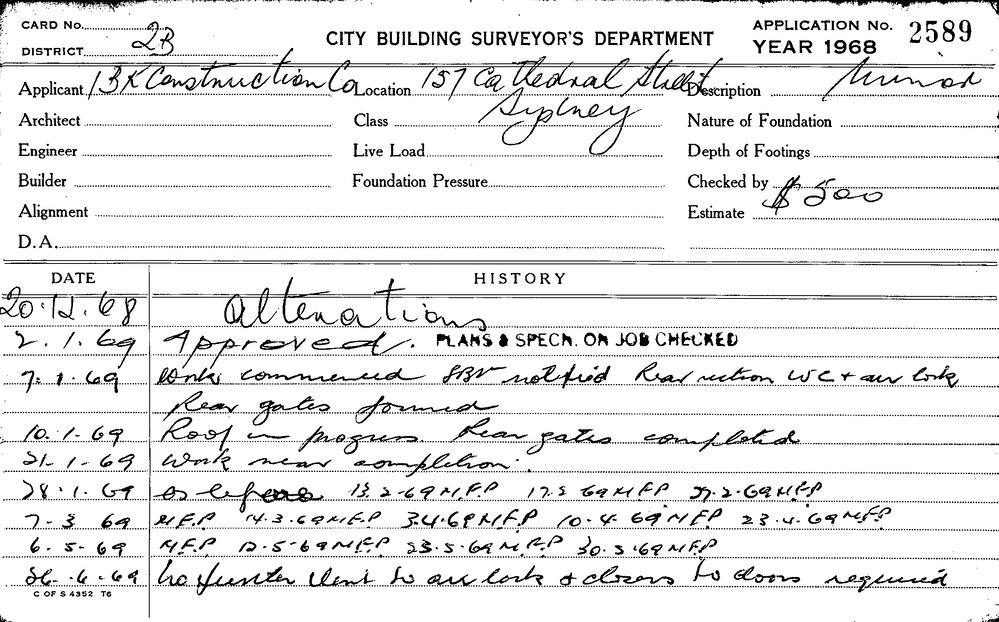 CARD No.
DISTRICT 2B
CITY BUILDING SURVEYOR'S DEPARTMENT
APPLICATION No. 2589
YEAR 1968
Applicant BK Construction Co Location 157 Cathedral Street Description Minor
Sydney
Architect Class Nature of Foundation
Engineer Live Load Depth of Footings
Builder Foundation Pressure Checked by
Alignment Estimate $500
D.A.
DATE HISTORY
20.12.68 Alterations
2.1.69 Approved. PLANS & SPECN. ON JOB CHECKED
7.1.69 Work commenced notified Rear WC + air lock
Rear gates formed
10.1.69 Roof in progress Rear gates completed
21.1.69 Work near completion.
28.1.69 as before 13.2.69 N.F.P 17.2.69 N.F.P 27.2.69 N.F.P
7.3.69 N.F.P 14.3.69 N.F.P 3.4.69 N.F.P 10.4.69 N.F.P 23.4.69 N.F.P
6.5.69 N.F.P 12.5.69 N.F.P 23.5.69 N.F.P 30.5.69 N.F.P
26.6.69 No further Vent to air lock & closers to doors required
C OF S 4352 T6